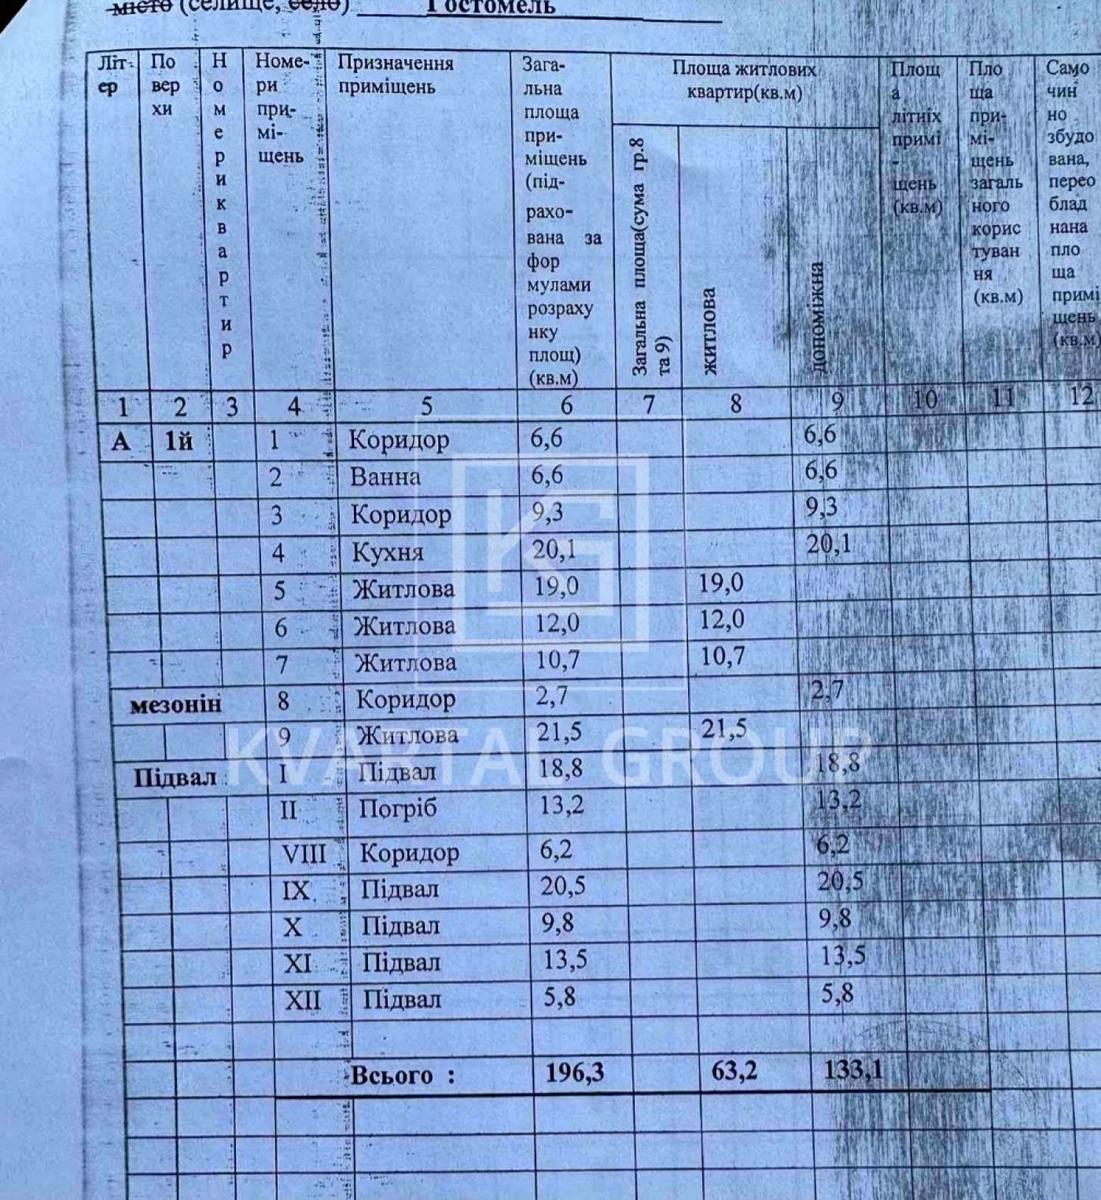 місто (селище, село) Гостомель
Літ- ер
По вер хи
Н о м е р и к в а р т и р
Номе- ри при- мі- щень
Призначення приміщень
Зага- льна площа при- міщень (під- рахо- вана за фор мулами розраху нку площ) (кв.м)
Площа житлових квартир(кв.м)
Загальна площа(сума гр.8 та 9)
житлова
допоміжна
Площ а літніх примі - щень (кв.м)
Пло ща при- мі- щень загаль ного корис туван ня (кв.м)
Само чин но збудо вана, перео блад нана пло ща примі щень (кв.м)
1 2 3 4 5 6 7 8 9 10 11 12
А 1й 1 Коридор 6,6 6,6
2 Ванна 6,6 6,6
3 Коридор 9,3 9,3
4 Кухня 20,1 20,1
5 Житлова 19,0 19,0
6 Житлова 12,0 12,0
7 Житлова 10,7 10,7
мезонін 8 Коридор 2,7 2,7
9 Житлова 21,5 21,5
KVARTAL GROUP
Підвал I Підвал 18,8 18,8
II Погріб 13,2 13,2
VIII Коридор 6,2 6,2
IX Підвал 20,5 20,5
X Підвал 9,8 9,8
XI Підвал 13,5 13,5
XII Підвал 5,8 5,8
Всього : 196,3 63,2 133,1